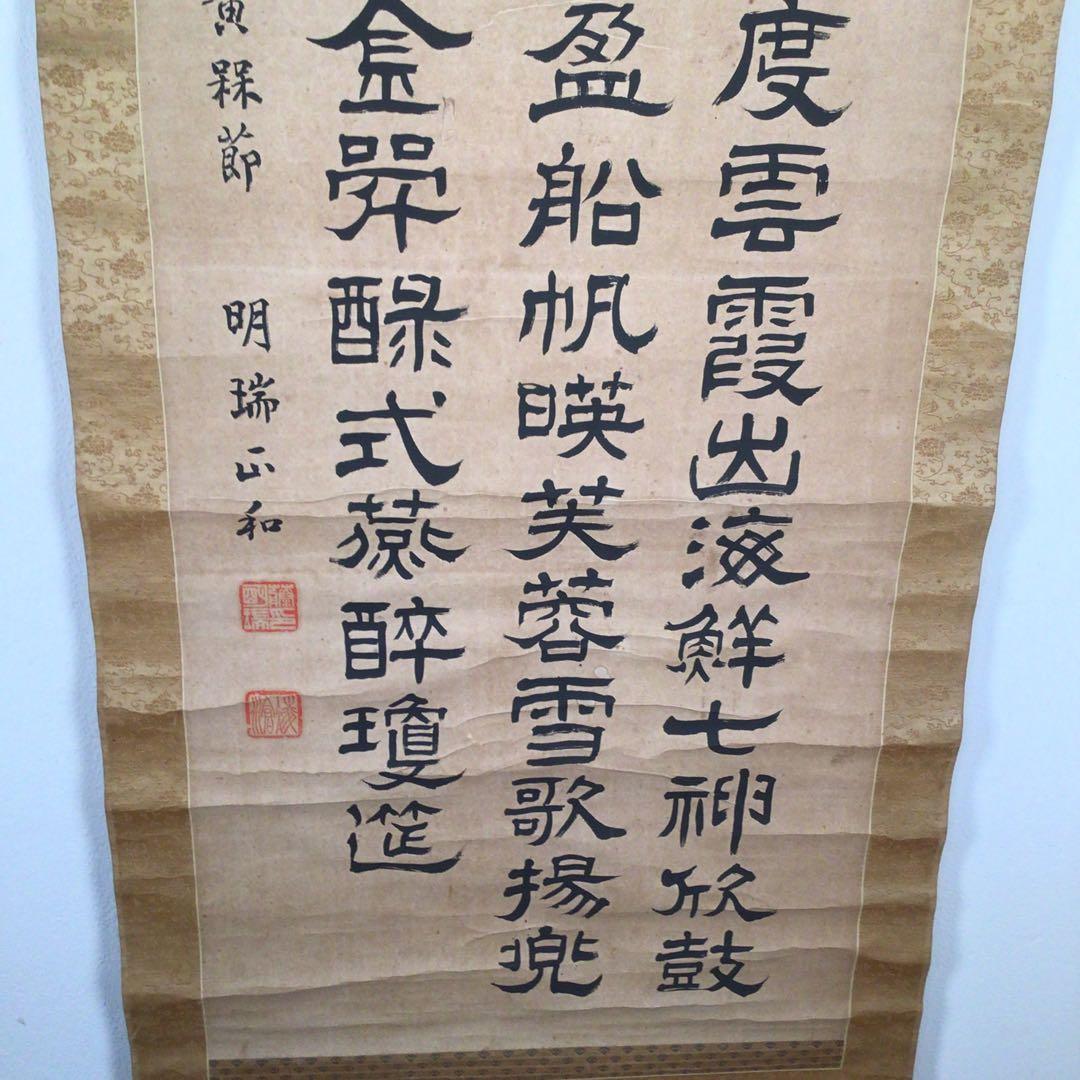 度雲霞出海鮮七神欣鼓
盈船帆暎芙蓉雪歌揚兜
金斝醁式燕醉瓊筵
黄槑節 明瑞正和